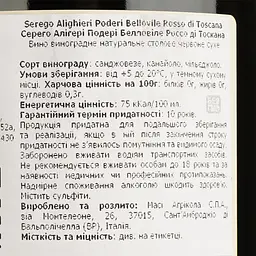 Serego Alighieri Poderi Bellovile Rosso di Toscana
Серего Алігері Подері Белловіле Россо ді Тоскана
Вино виноградне натуральне столове червоне сухе
Сорт винограду: санджовезе, канайоло, чильєджоло.
Умови зберігання: від +5 до 20°С, у темному сухому
місці. Харчова цінність на 100г: білків 0г, жирів 0г,
вуглеводів 0,3г.
Енергетична цінність: 75 кКал/100 мл.
Гарантійний термін придатності: 10 років.
Продукція придатна для подальшого зберігання
та реалізації, якщо в ній після закінчення строку
придатності не з'явилось помутніння та видимого осаду.
Заборонено вживати водіям транспортних засобів.
Не рекомендується вживати особам до 18 років та за
наявності медичних чи професійних протипоказань.
Надмірне споживання алкоголю шкодить здоров'ю.
Містить сульфіти.
Вироблено та розлито: Масі Агрікола С.П.А.,
віа Монтелеоне, 26, 37015, Сант'Амброджіо ді
Вальполічелла (ВР), Італія.
Місткість та міцність: див. на етикетці.
52а,